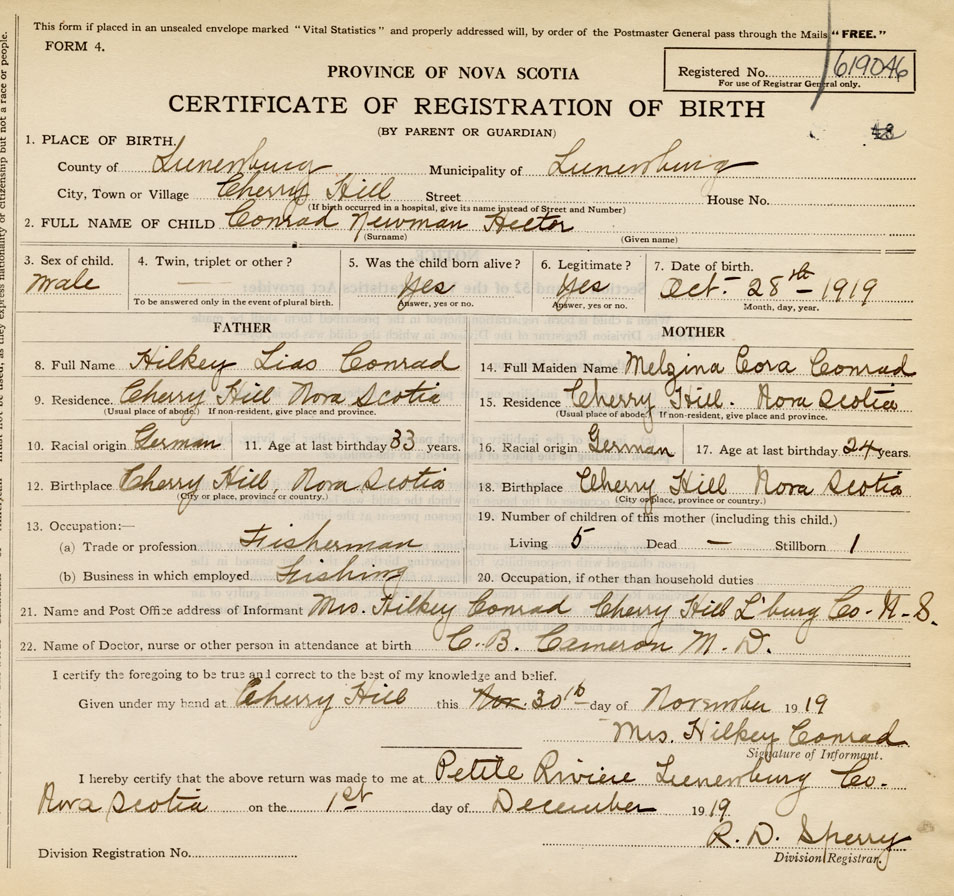 This form if placed in an unsealed envelope marked "Vital Statistics" and properly addressed will, by order of the Postmaster General pass through the Mails "FREE."
FORM 4.
Registered No. 619046
For use of Registrar General only.
PROVINCE OF NOVA SCOTIA
CERTIFICATE OF REGISTRATION OF BIRTH
(BY PARENT OR GUARDIAN)
1. PLACE OF BIRTH.
County of Lunenburg Municipality of Lunenburg
City, Town or Village Cherry Hill Street House No.
(If birth occurred in a hospital, give its name instead of Street and Number)
2. FULL NAME OF CHILD Conrad Newman Hector
(Surname) (Given name)
3. Sex of child. 4. Twin, triplet or other? 5. Was the child born alive? 6. Legitimate? 7. Date of birth.
Male — Yes Yes Oct. 28th 1919
To be answered only in the event of plural birth. Answer, yes or no. Answer, yes or no. Month, day, year.
FATHER
8. Full Name Hilkey Lias Conrad
9. Residence. Cherry Hill Nova Scotia
(Usual place of abode.) If non-resident, give place and province.
10. Racial origin German 11. Age at last birthday 33 years.
12. Birthplace Cherry Hill, Nova Scotia
(City or place, province or country.)
13. Occupation:—
(a) Trade or profession Fisherman
(b) Business in which employed Fishing
MOTHER
14. Full Maiden Name Melzina Cora Conrad
15. Residence Cherry Hill. Nova Scotia
(Usual place of abode.) If non-resident, give place and province.
16. Racial origin German 17. Age at last birthday 24 years.
18. Birthplace Cherry Hill Nova Scotia
(City or place, province or country.)
19. Number of children of this mother (including this child.)
Living 5 Dead — Stillborn 1
20. Occupation, if other than household duties
21. Name and Post Office address of Informant Mrs. Hilkey Conrad Cherry Hill L'burg Co. N.S.
22. Name of Doctor, nurse or other person in attendance at birth C. B. Cameron M. D.
I certify the foregoing to be true and correct to the best of my knowledge and belief.
Given under my hand at Cherry Hill this Nov. 30th day of November 1919
Mrs. Hilkey Conrad
Signature of Informant.
I hereby certify that the above return was made to me at Petite Riviere Lunenburg Co.
Nova Scotia on the 1st day of December 1919.
R. D. Sperry
Division Registrar.
Division Registration No.